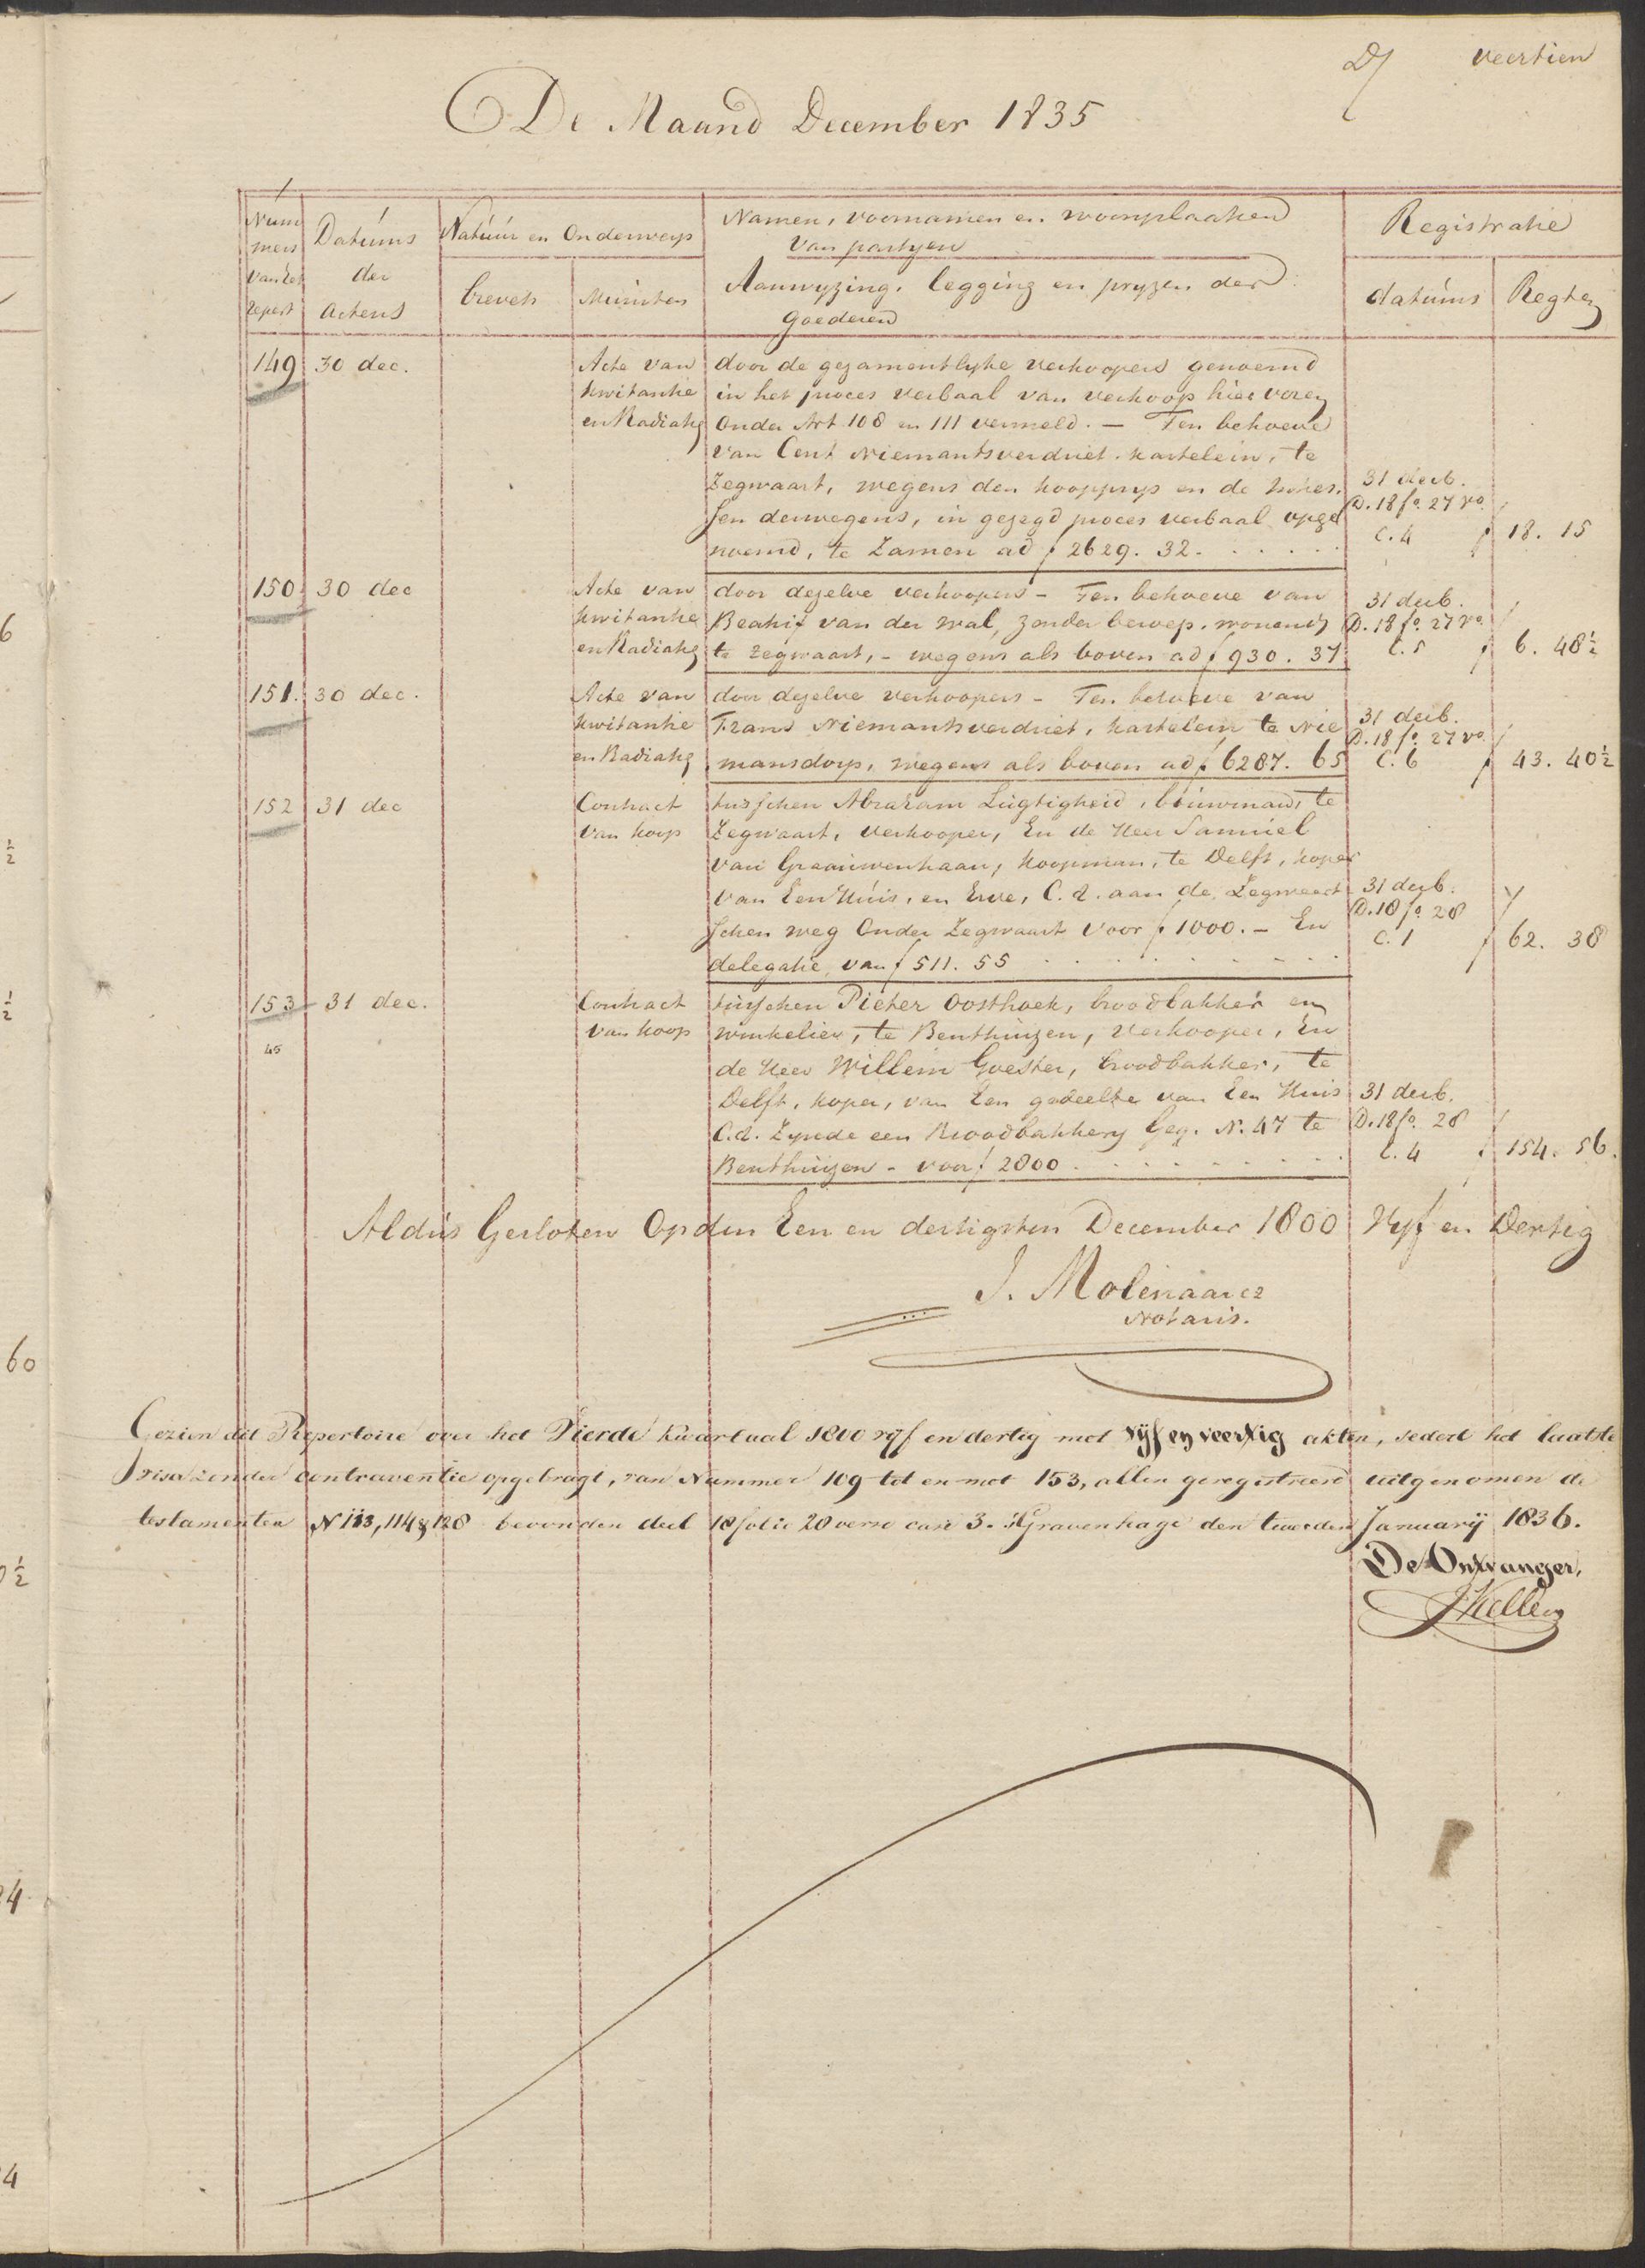 veertien
De Maand December 1835
Num
mers
van het
repert
Datums
der
Actens
Natuur en Onderwerp
brevets
Minuten
Namen, voornamen en woonplaatsen
van partyen
Aanwyzing, legging en pryzen der
goederen
Registratie
datums
Regten
149
30 dec.
Acte van
kwitantie
en Radiatie
door de gezamentlyke verkoopers genoemd
in het proces verbaal van verkoop hier voren
onder Art 108 en 111 vermeld. — Ten behoeve
van Cent Niemantsverdriet, kastelein, te
Zegwaart, wegens den koopprys en de Intres-
sen derwegens, in gezegd proces verbaal opge
noemd, te zamen ad f 2629. 32.
31 decb.
D. 18 fo. 27 vo.
C. 4
f 18. 15
150
30 dec
Acte van
kwitantie
en Radiatie
door dezelve verkoopers - Ten behoeve van
van der Wal, zonder beroep, wonende
te Zegwaart, - wegens als boven ad f 930. 37
31 decb.
D. 18 fo. 27 vo.
C. 5
f 6. 48½
151.
30 dec.
Acte van
kwitantie
en Radiatie
door dezelve verkoopers - Ten behoeve van
Frans Niemantsverdriet, kastelein te Nie
mansdorp, wegens als boven ad f 6287. 65
31 decb.
D. 18 fo. 27 vo.
C. 6
f 43. 40½
152
31 dec
Contract
van koop
tusschen Abraham Lugtigheid, bouwman, te
Zegwaart, verkooper, En de Heer Samuel
van Graauwenhaan, koopman, te Delft, koper
van Een Huis, en Erve, C. a. aan de Zegwaart
schen weg Onder Zegwaart voor f 1000. - En
delegatie van f 511. 55
31 decb.
D. 18 fo. 28
C. 1
f 62. 38
153
31 dec.
45
Contract
van koop
tusschen Pieter Oosthoek, broodbakker en
winkelier, te Benthuizen, verkooper, En
de Heer Willem Goester, broodbakker, te
Delft, koper, van Een gedeelte van Een Huis
C.a. Zynde een Broodbakkery Geq. N. 47 te
Benthuizen - voor f 2800.
31 decb.
D. 18 fo. 28
C. 4
f 154. 56.
Aldus Gesloten Op den Een en dertigsten December 1800 Vyf en Dertig
J. Molenaar cz
Notaris.
Gezien dit Repertoire over het Vierde kwartaal 1800 vyf en dertig met vijf en veertig akten, sedert het laatste
visa zonder contraventie opgebragt, van Nummer 109 tot en met 153, allen geregistreerd uitgenomen de
testamenten N 113, 114 & 128 bevonden deel 18 folio 28 verso case 3. 'sGravenhage den tweeden Januarij 1836.
De Ontvanger,